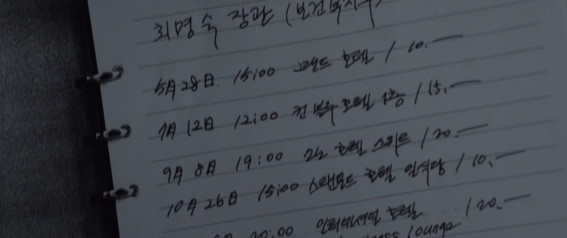 최명숙 장관 (보건복지부)
5月 28日. 15:00 그랜드 호텔 / 10.—
7月 12日 12:00 호텔 1층 / 15.—
9月 8日 19:00 호텔 스위트 / 20.—
10月 26日 15:00 스탠포드 호텔 일식당 / 10.—
20:00 인터내셔널 호텔 / 20.—
lounge